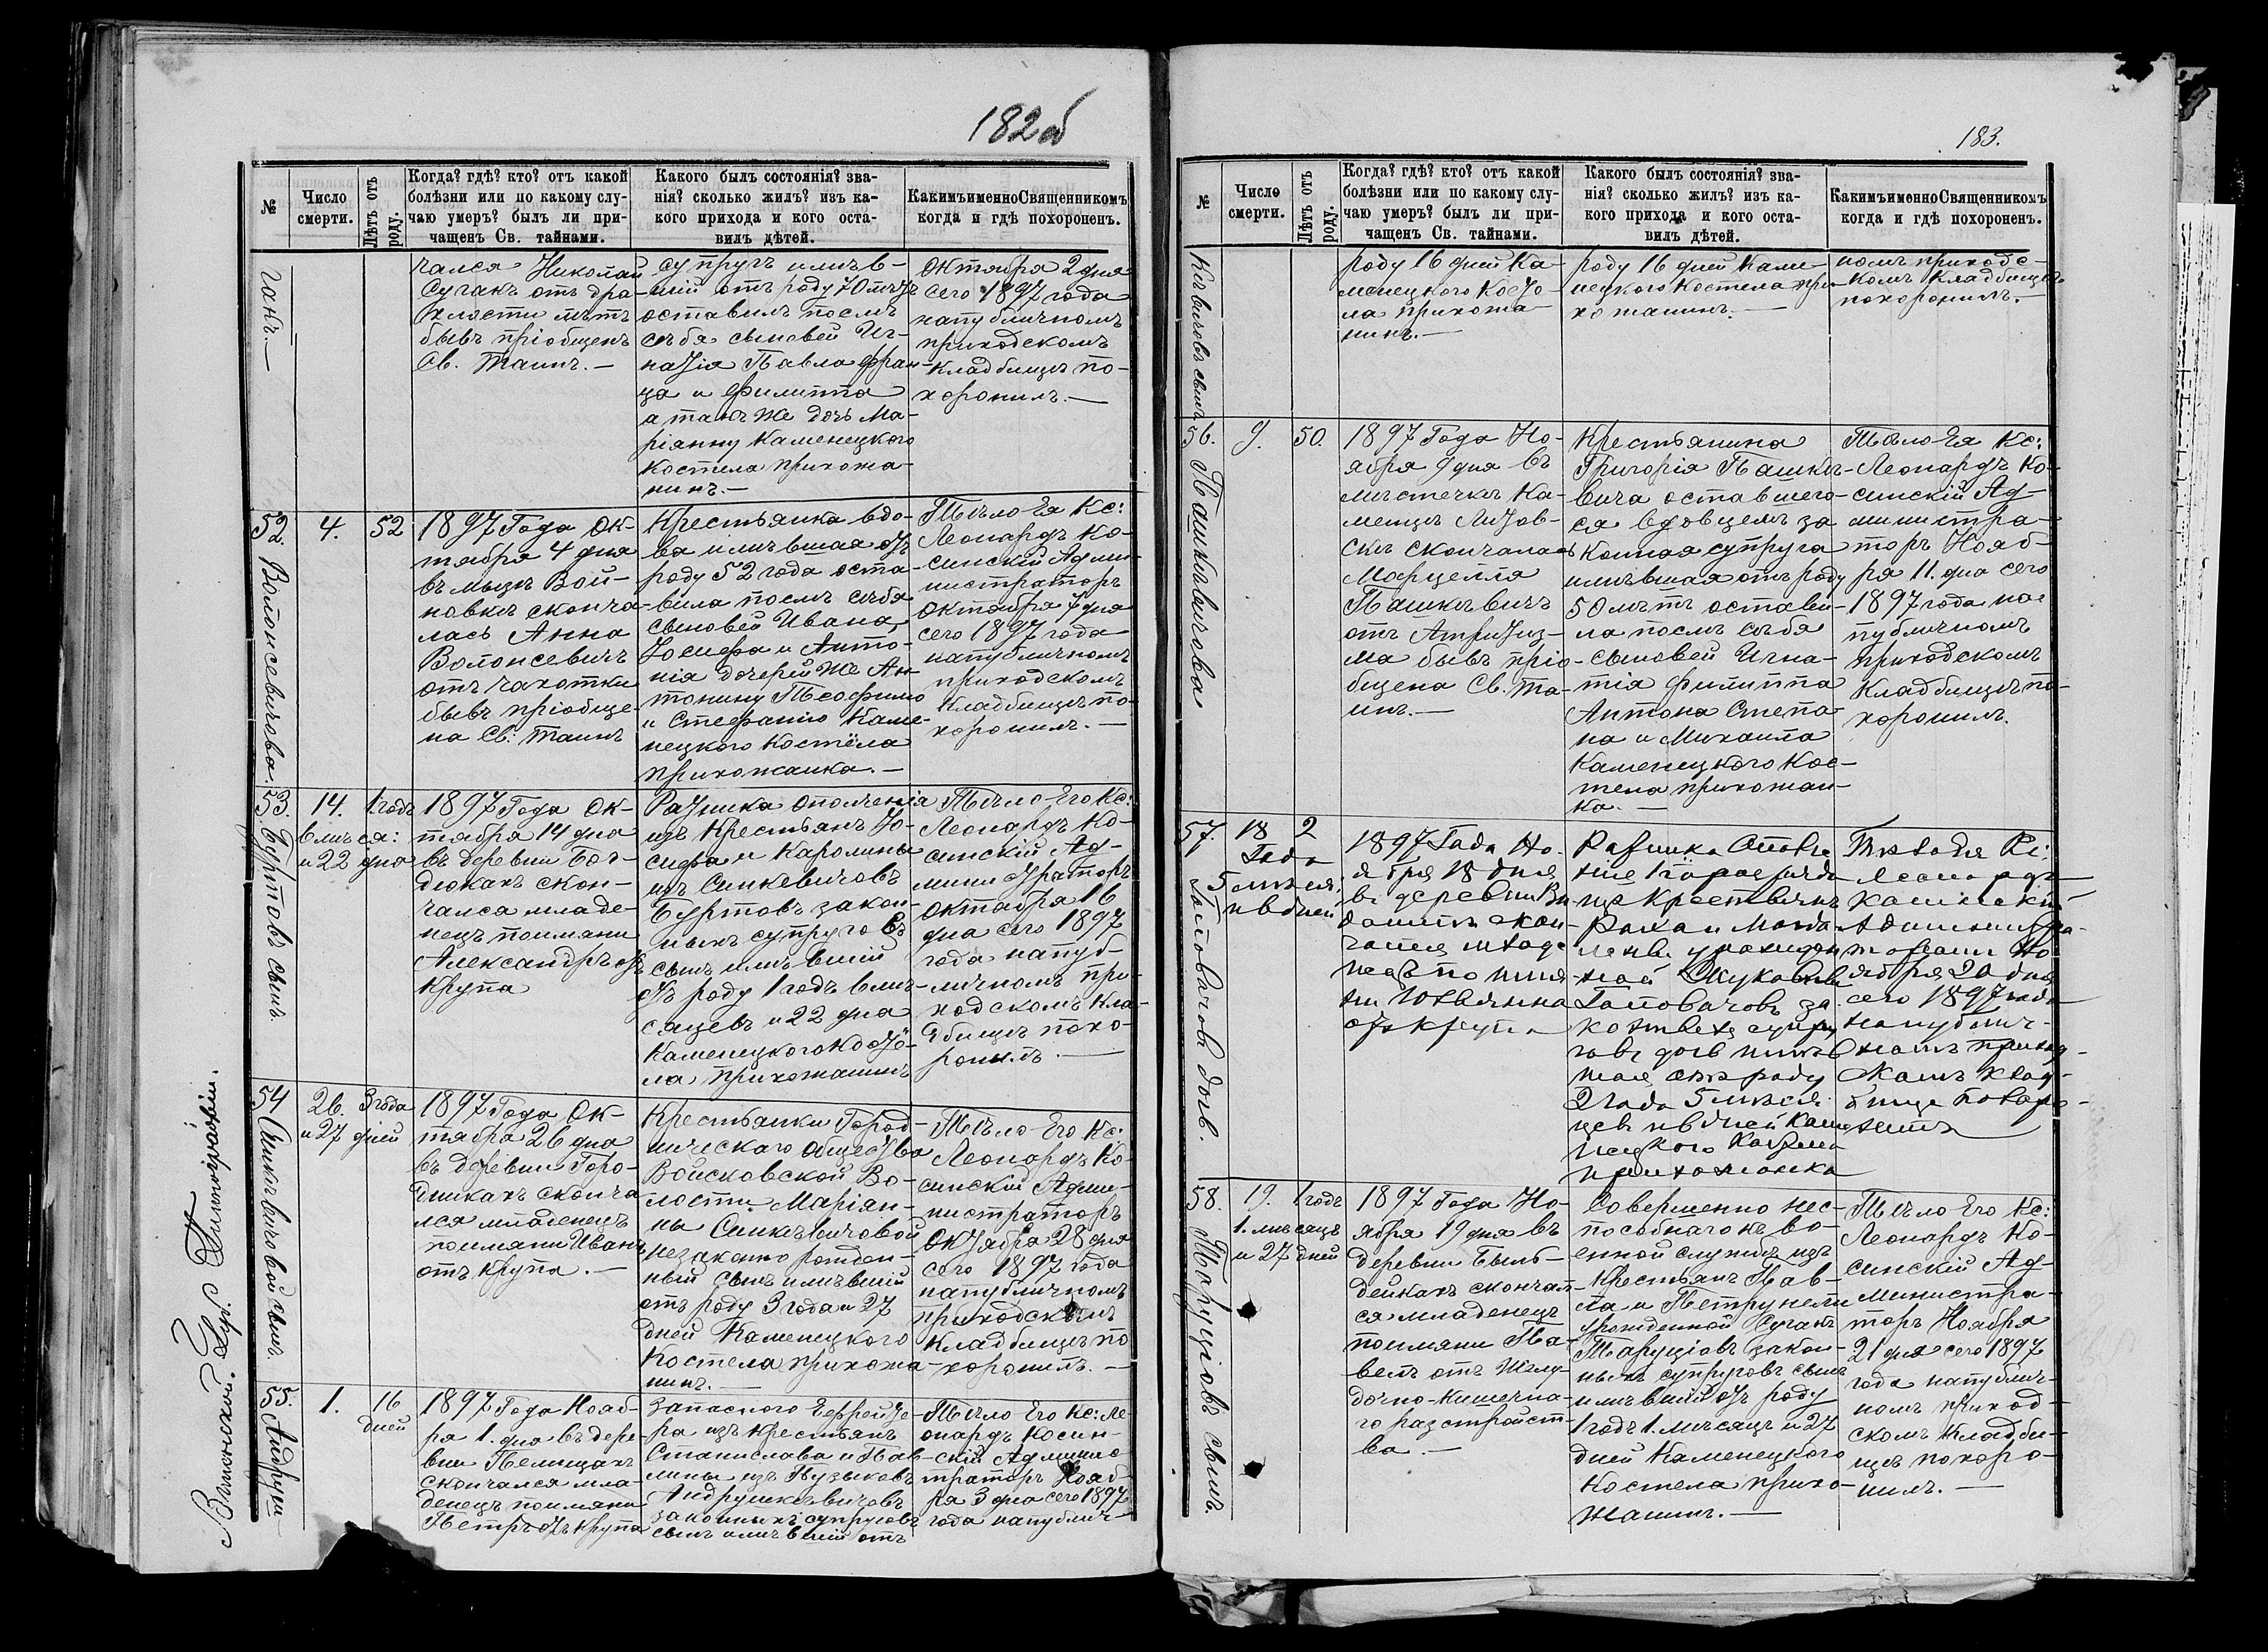 182б
№
Число смерти.
Лѣтъ отъ роду.
Когда? гдѣ? кто? отъ какой
болѣзни или по какому слу-
чаю умеръ? былъ ли при-
чащенъ Св. тайнами.
Какого былъ состоянія? зва-
нія? сколько жилъ? изъ ка-
кого прихода и кого оста-
вилъ дѣтей.
Какимъ именно Священникомъ
когда и гдѣ похороненъ.
чакъ.—
чался Николай
Сучакъ отъ дра-
хлости лѣтъ
бывъ пріобщенъ
Св. Таинъ.—
супругъ имѣв-
шій отъ роду 70 лѣтъ
оставилъ послѣ
себя сыновей Иг-
натія Павла Фран-
ца и Филиппа
а такъ же дочь Ма-
ріанну Каменецкого
костела прихожа-
нинъ.—
Октября 2 дня
сего 1897 года
на публичномъ
приходскомъ
кладбищѣ по-
хоронилъ.—
52.
Волонсевичова.
4.
52
1897 Года Ок-
тября 4 дня
въ мызѣ Вой-
новкѣ сконча-
лась Анна
Волонсевичъ
отъ чахотки
бывъ пріобще-
на Св: Таинъ
Крестьянка вдо-
ва имѣвшая отъ
роду 52 года оста-
вила послѣ себя
сыновей Ивана,
Іосифа и Анто-
нія дочерей же Ан-
тонину Теофилю
и Стефанію Каме-
нецкого Костёла
прихожанка.—
Тѣло Ея Кс:
Леонардъ Ко-
синскій Адми-
нистраторъ
Октября 7 дня
сего 1897 года
на публичномъ
приходскомъ
кладбищѣ по-
хоронилъ.—
53.
Буртовъ сынъ.
14.
1 годъ
6 мѣсяц:
и 22 дня
1897 Года Ок-
тября 14 дня
въ деревни Бод-
дюкахъ скон-
чался младе-
нецъ поимяни
Александръ отъ
крупа
Ратника Ополченія
изъ Крестьянъ Іо-
сифа и Каролины
изъ Синкевичовъ
Буртовъ закон-
ныхъ супруговъ
сынъ имѣвшій
отъ роду 1 годъ 6 мѣ-
сяцевъ и 22 дня
Каменецкого Костё-
ла прихожанинъ
Тѣло Его Кс:
Леонардъ Ко-
синскій Ад-
министраторъ
Октября 16
дня сего 1897
года на пуб-
личномъ при-
ходскомъ кла-
дбищѣ похо-
ронилъ.—
54
Синкѣвичовой сынъ.
26.
3 года
и 27 дней
1897 Года Ок-
тября 26 дня
въ деревни Горо-
дникахъ сконча
лся младенецъ
поимяни Иванъ
отъ крупа.—
Крестьянки Город-
ническаго Общества
Войсковской Во-
лости Маріан-
ны Синкѣвичовой
незаконно рожден-
ный сынъ имѣвшій
отъ роду 3 года и 27
дней Каменецкого
Костела прихожа-
нинъ.—
Тѣло Его Кс:
Леонардъ Ко-
синскій Адми-
нистраторъ
Октября 28 дня
сего 1897 года
на публичномъ
приходскомъ
кладбищѣ по
хоронилъ.—
55.
Андруш-
1.
16
дней
1897 Года Нояб-
ря 1. дня въ дере-
вни Пелищахъ
скончался мла-
денецъ поимяни
Петръ отъ крупа
Запасного Еффейте-
ра изъ крестьянъ
Станислава и Пав-
лины изъ Пузыковъ
Андрушкевичовъ
законныхъ супруговъ
сынъ имѣвшій отъ
Тѣло Его Кс: Ле-
онардъ Косин-
скій Админис
траторъ Нояб-
ря 3 дня сего 1897
года на публич-
183.
№
Число смерти.
Лѣтъ отъ роду.
Когда? гдѣ? кто? отъ какой
болѣзни или по какому слу-
чаю умеръ? былъ ли при-
чащенъ Св. тайнами.
Какого былъ состоянія? зва-
нія? сколько жилъ? изъ ка-
кого прихода и кого оста-
вилъ дѣтей.
Какимъ именно Священникомъ
когда и гдѣ похороненъ.
кѣвичовъ сынъ
роду 16 дней Ка-
менецкого Костё-
ла прихожа-
нинъ.—
роду 16 дней Каме-
нецкого Костела при-
хожанинъ.—
номъ приходс-
комъ кладбищѣ
похоронилъ.—
56.
Пашкѣвичова
9.
50.
1897 Года Но-
ября 9 дня въ
мѣстечкѣ Ка-
менцѣ Литов-
скѣ скончалась
Марцелля
Пашкѣвичъ
отъ Атритиз-
ма бывъ пріо-
бщена Св. Та-
инъ.—
Крестьянина
Григорія Пашкѣ-
вича оставшего-
ся вдовцемъ за
конная супруга
имѣвшая отъ роду
50 лѣтъ остави-
ла послѣ себя
сыновей Игна-
тія Филиппа
Антона Степа-
на и Михаила
Каменецкого Кос-
тела прихожан-
ка.—
Тѣло Ея Кс:
Леонардъ Ко-
синскій Ад-
министра-
торъ Нояб-
ря 11. дня сего
1897 года на
публичномъ
приходскомъ
кладбищѣ по-
хоронилъ.
57.
Головачовъ дочь.
18
2
Года
5 мѣсяц.
и 6 дней
1897 Года Но-
ября 18 дня
въ деревни Ви
скон-
чался младе
нецъ по имя
ни Юлія
отъ крупа
Ратника Опол
изъ Крестьянъ
Головачовъ за
конныхъ супру
говъ дочь имѣв
шая отъ роду
2 года 5 мѣся
цевъ и 6 дней Каме
нецкого Костела
прихожанка
Тѣло Ея Кс:
Леонардъ
Косинскій
Администра-
торъ Но-
ября 20 дня
сего 1897 года
на публич-
номъ приход-
скомъ клад-
бище похоро-
нилъ
58.
Торуціовъ сынъ.
19.
1 годъ
1. мѣсяцъ
и 27 дней
1897 Года Но-
ября 19 дня въ
деревни Бынь-
дейкахъ скончал-
ся младенецъ
поимяни Па-
велъ отъ Желу-
дочно-кишечна-
го разстройст-
ва.—
Совершенно нес-
пособнаго къ во-
енной службѣ изъ
Крестьянъ Пав-
ла и Петрунели
урожденной Сучакъ
Таруціовъ закон-
ныхъ супруговъ сынъ
имѣвшій отъ роду
1 годъ 1. мѣсяцъ и 27
дней Каменецкого
Костела прихо-
жанинъ.—
Тѣло Его Кс:
Леонардъ Ко-
синскій Ад-
министра-
торъ Ноября
21 дня сего 1897
года на публич-
номъ приход-
скомъ кладби-
щѣ похоро-
нилъ.—